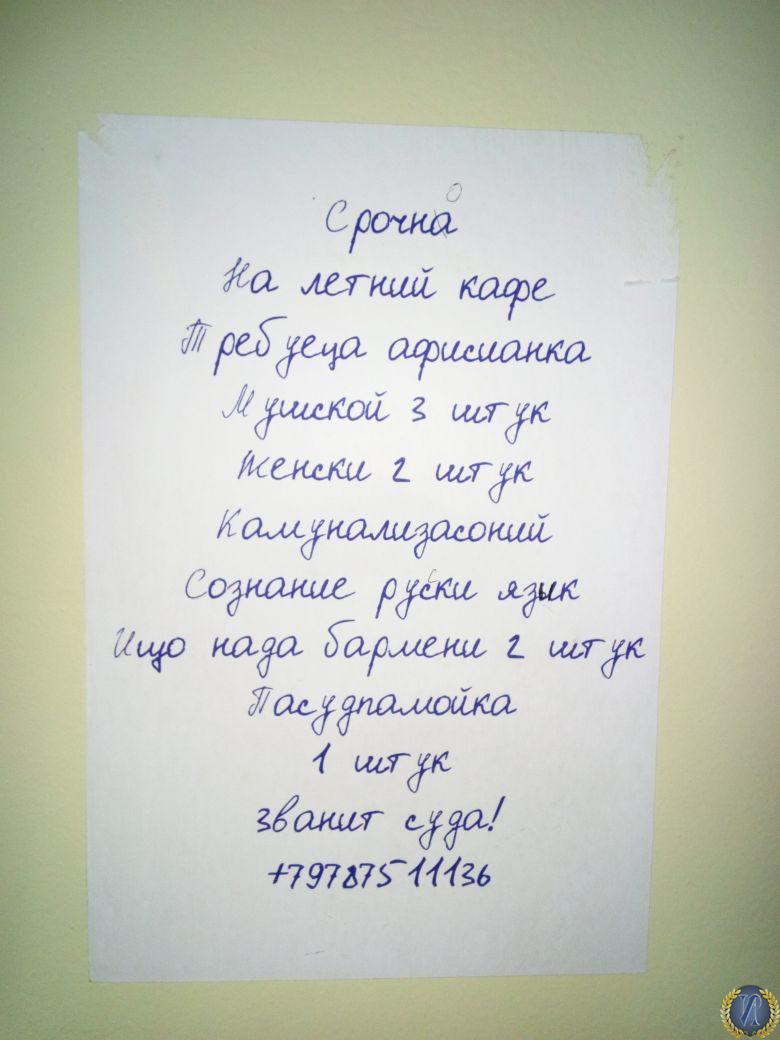 Срочна
На летний кафе
Требуеца афисианка
Мушской 3 штук
Женски 2 штук
Камунализасоний
Сознание руски язык
Ищо нада бармени 2 штук
Пасудпамойка
1 штук
званит суда!
+79787511136